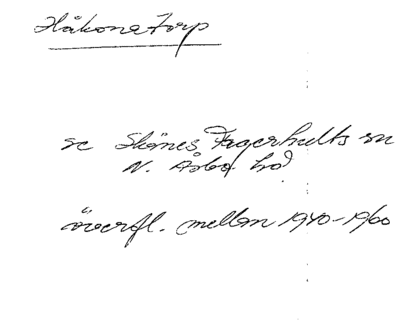 Håkonatorp
se Skånes Fagerhults sn
N. Åsbo hd
överfl. mellan 1940-1960